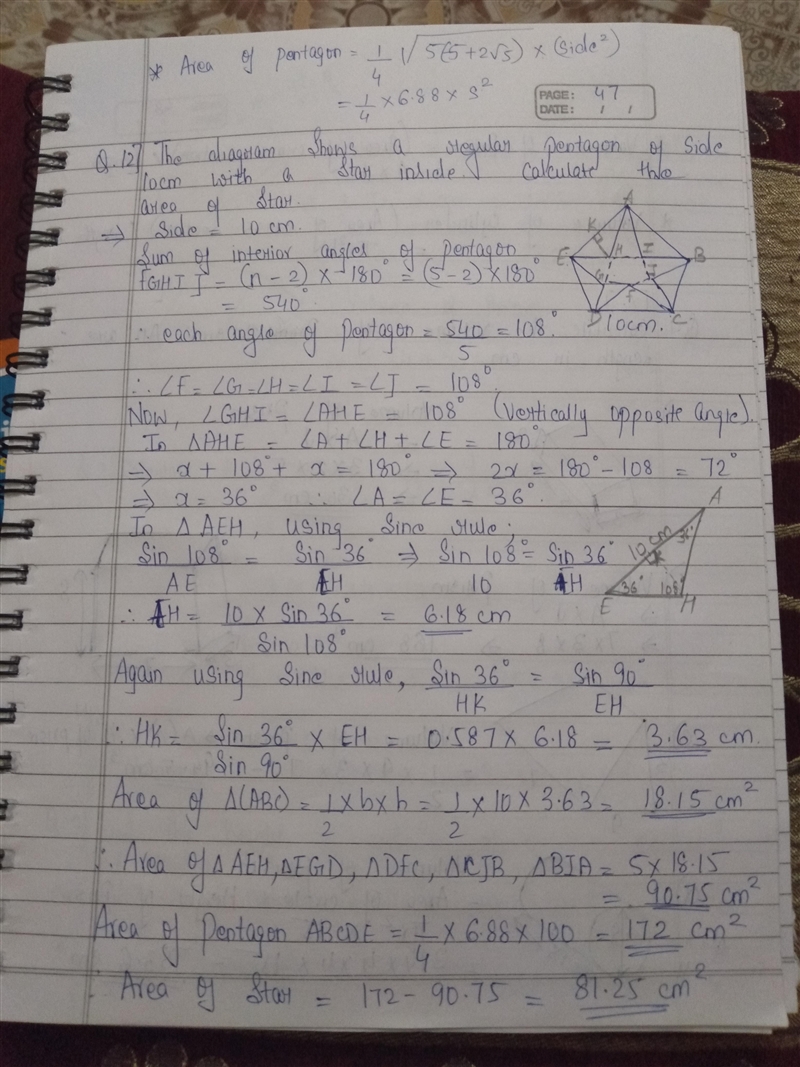 * Area of pentagon = 1/4 √5(5+2√5) × (side²)
= 1/4 × 6.88 × s²
PAGE: 47
DATE: / /
Q.12] The diagram shows a regular pentagon of side
10cm with a star inside. Calculate the
area of star.
⇒ Side = 10 cm.
Sum of interior angles of pentagon
FGHIJ = (n-2) × 180° = (5-2) × 180°
= 540°.
∴ each angle of pentagon = 540/5 = 108°.
A
K
E H I B
G J
F
D 10cm. C
∴ ∠F = ∠G = ∠H = ∠I = ∠J = 108°.
Now, ∠GHI = ∠AHE = 108° (vertically opposite angle).
In △AHE = ∠A + ∠H + ∠E = 180°.
⇒ x + 108° + x = 180° ⇒ 2x = 180° - 108 = 72°
⇒ x = 36° ∴ ∠A = ∠E = 36°.
In △AEH, using Sine rule;
Sin 108°/AE = Sin 36°/EH ⇒ Sin 108°/10 = Sin 36°/AH
A
10 cm
36°
K
36° 108°
E H
∴ EH = 10 × Sin 36°/Sin 108° = 6.18 cm
Again using Sine rule, Sin 36°/HK = Sin 90°/EH
∴ HK = Sin 36°/Sin 90° × EH = 0.587 × 6.18 = 3.63 cm.
Area of △(ABC) = 1/2 × b × h = 1/2 × 10 × 3.63 = 18.15 cm²
∴ Area of △AEH, △EGD, △DFC, △CJB, △BIA = 5 × 18.15
= 90.75 cm²
Area of Pentagon ABCDE = 1/4 × 6.88 × 100 = 172 cm²
∴ Area of Star = 172 - 90.75 = 81.25 cm²